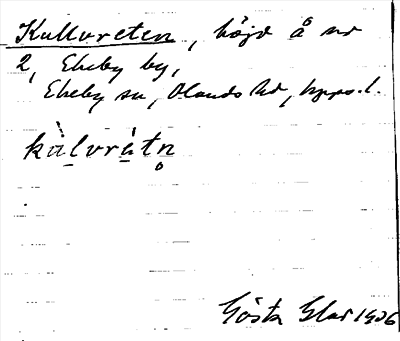 Kullvreten, höjd å nr
2, Ekeby by,
Ekeby sn, Olands hd, Upps. l.
kàlvrétn̥
Gösta Glas 1906